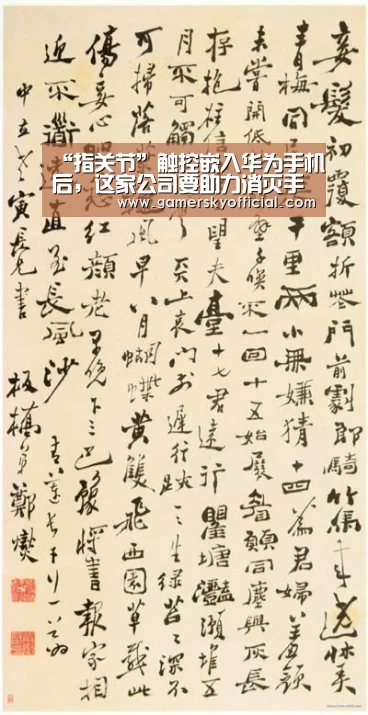 妾髮初覆額折花門前劇郎騎竹馬來遶牀弄
青梅同居里兩小無嫌猜十四為君婦羞顏
未嘗開低千喚不一回十五始展眉願同塵與灰長
存抱柱信望夫臺十七君遠行瞿塘灩澦堆五
月不可觸天上哀門前遲行跡一一生綠苔苔深不
可掃落風早八月蝴蝶黃雙飛西園草感此
傷妾心愁紅顏老早晚下三巴預將書報家相
近不道遠直至長風沙
中立寅長兄書 板橋弟鄭燮
“指关节”触控嵌入华为手机
后，这家公司要助力消灭手
www.gamerskyofficial.com